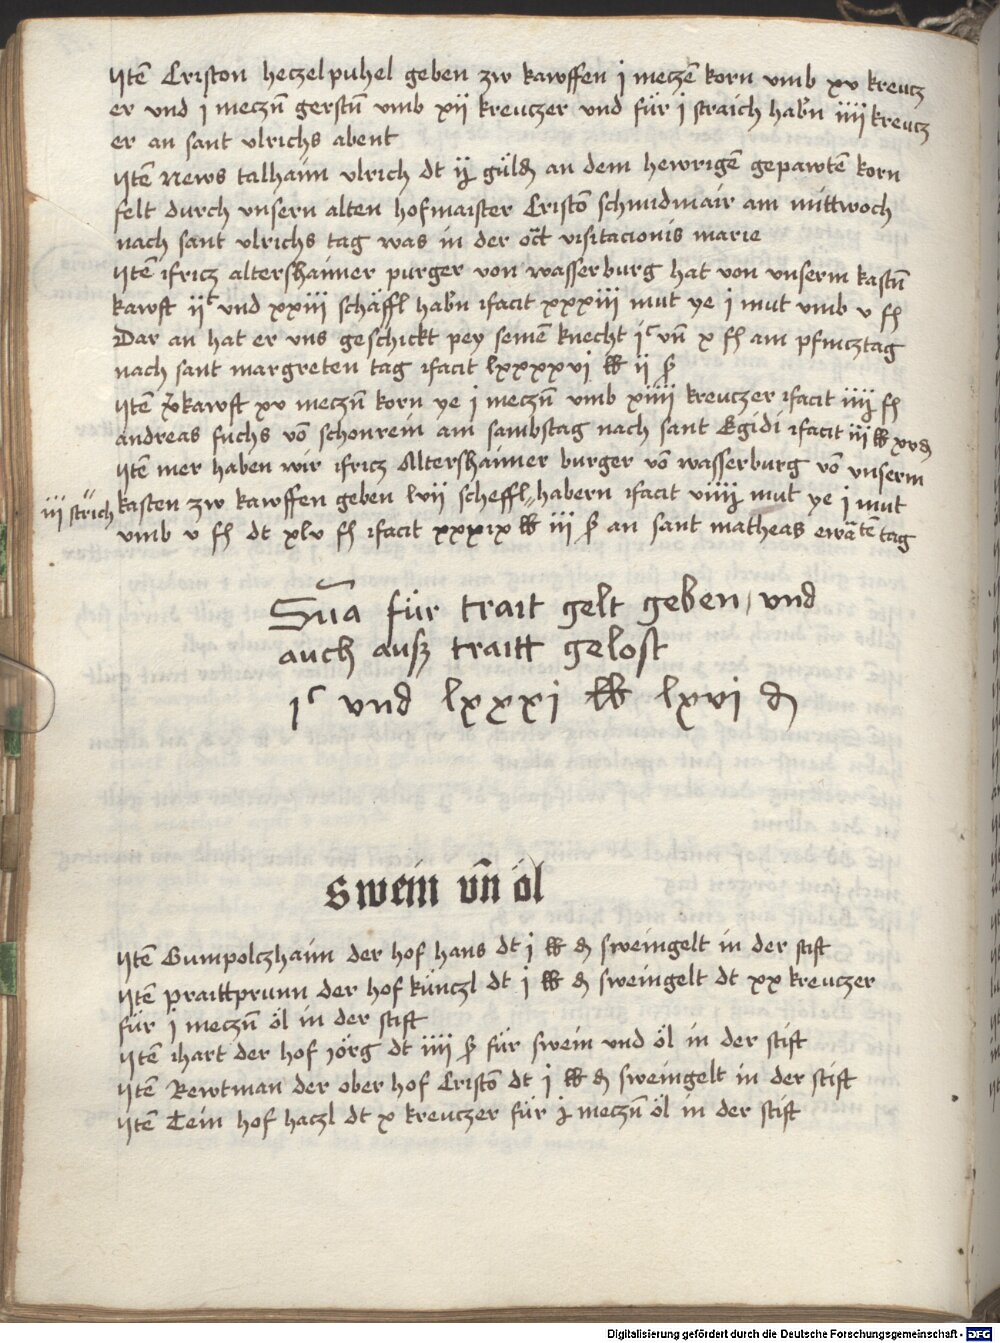 Jtē Criston heczelpuhel geben zw kawffen j meczē korn vmb xv kreucz
er vnd j meczn̄ gerstn̄ vmb xij kreuczer vnd für j straich habn̄ iiij kreucz
er an sant vlrichs abent
Jtē News talhaim vlrich dt ij güld an dem hewrigē gepawtē korn
felt durch vnsern alten hofmaister Cristō schmidmair am mittwoch
nach sant vlrichs tag was in der oct visitacionis marie
Jtē fricz altershaimer purger von wasserburg hat von vnserm kastn̄
kawft ijᶜ vnd xxiij schäffl habn̄ facit xxxiij mut ye j mut vmb v fl
Dar an hat er vns geschickt pey seinē knecht jᶜ vn̄ x fl am pfincztag
nach sant margreten tag facit lxxxxvj ℔ ij ß
Jtē v̄kawft xv meczn̄ korn ye j meczn̄ vmb xiiij kreuczer facit iiij fl
andreas fuchs vō schonrein am sambstag nach sant Egidi facit iij ℔ xv d
Jtē mer haben wir fricz Altershaimer burger vō wasserburg vō vnserm
iij strich kasten zw kawffen geben lvij scheffl habern facit viiij mut ye j mut
vmb v fl dt xlv fl facit xxxix ℔ iij ß an sant matheas ewātē tag
Sūa für trait gelt geben, vnd
auch auß traitt gelost
jᶜ vnd lxxxj ℔ lxvj d
swein vn̄ öl
Jtē Gumpolczhaim der hof hans dt j ℔ d sweingelt in der stift
Jtē praittprunn der hof künczl dt j ℔ d sweingelt dt xx kreuczer
für j meczn̄ öl in der stift
Jtē hart der hof jörg dt iiij ß für swein vnd öl in der stift
Jtē Rewtman der ober hof Cristō dt j ℔ d sweingelt in der stift
Jtē Tein hof haczl dt x kreuczer für j meczn̄ öl in der stift
Digitalisierung gefördert durch die Deutsche Forschungsgemeinschaft - DFG